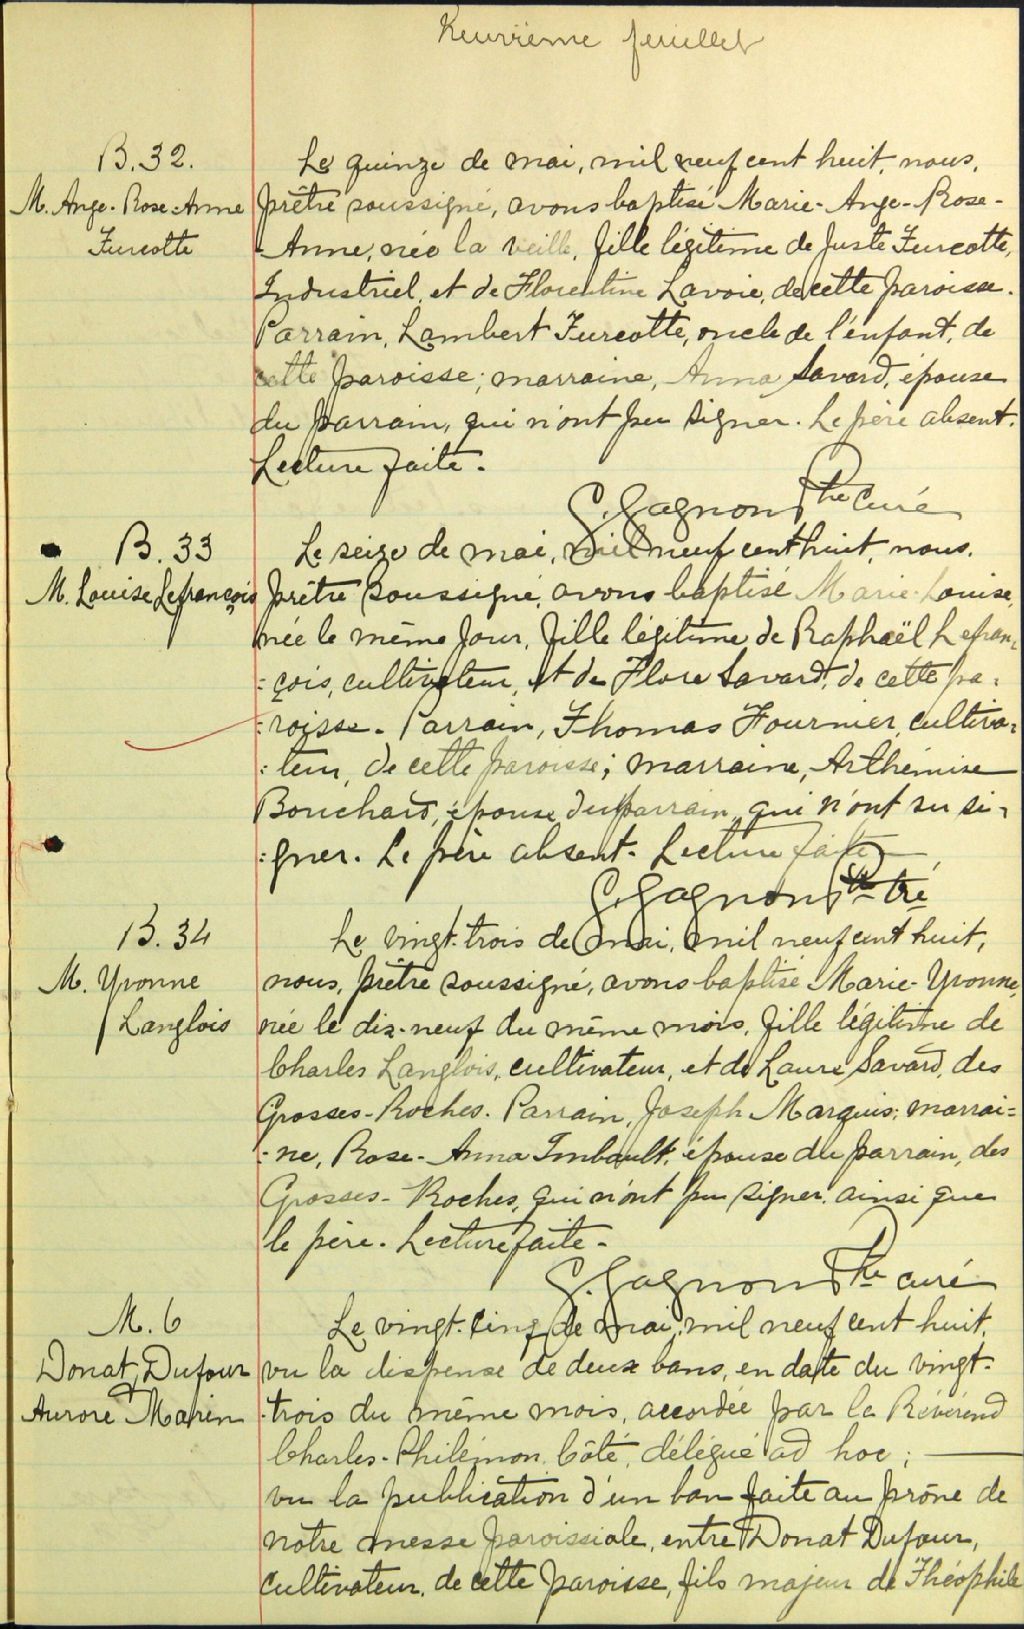 Neuvième feuillet
B. 32.
M. Ange-Rose-Anne
Turcotte
Le quinze de mai, mil neuf cent huit, nous,
prêtre soussigné, avons baptisé Marie-Ange-Rose-
Anne, née la veille, fille légitime de Juste Turcotte,
Industriel, et de Florentine Lavoie, de cette paroisse.
Parrain, Lambert Turcotte, oncle de l'enfant, de
cette paroisse; marraine, Anna Savard, épouse
du parrain, qui n'ont pu signer. Le père absent.
Lecture faite.
G. Gagnon Ptre curé
B. 33
M. Louise Lefrançois
Le seize de mai, mil neuf cent huit, nous,
prêtre soussigné, avons baptisé Marie-Louise,
née le même jour, fille légitime de Raphaël Lefran-
=çois, cultivateur, et de Flore Savard, de cette pa=
=roisse. Parrain, Thomas Fournier, cultiva=
=teur, de cette paroisse; marraine, Arthémise
Bouchard, épouse du parrain, qui n'ont su si-
=gner. Le père absent. Lecture faite
G. Gagnon Ptre
B. 34
M. Yvonne
Langlois
Le vingt-trois de mai, mil neuf cent huit,
nous, prêtre soussigné, avons baptisé Marie-Yvonne,
née le dix-neuf du même mois, fille légitime de
Charles Langlois, cultivateur, et de Laure Savard, des
Grosses-Roches. Parrain, Joseph Marquis; marrai=
=ne, Rose-Anna Imbault, épouse du parrain, des
Grosses-Roches, qui n'ont pu signer, ainsi que
le père. Lecture faite.
G. Gagnon Ptre curé
M. 6
Donat Dufour
&
Aurore Marin
Le vingt-cinq de mai, mil neuf cent huit,
vu la dispense de deux bans, en date du vingt-
trois du même mois, accordée par le Révérend
Charles-Philémon Côté, délégué ad hoc;
vu la publication d'un ban faite au prône de
notre messe paroissiale, entre Donat Dufour,
cultivateur, de cette paroisse, fils majeur de Théophile